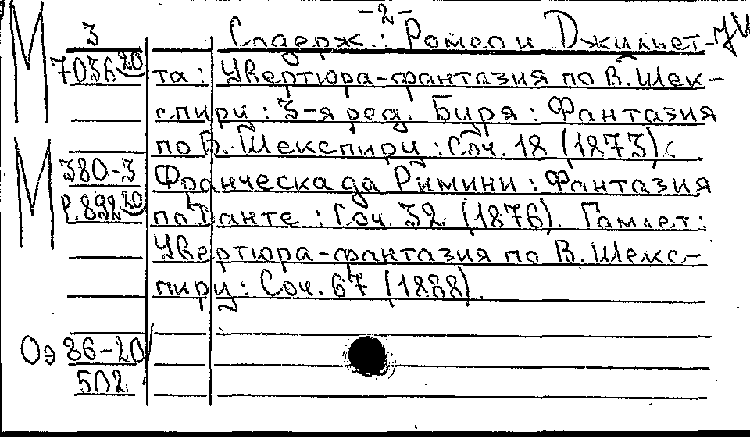 -2-
3 Содерж.: Ромео и Джульет-
7036 20 та: Увертюра-фантазия по В. Шек-
спиру: 3-я ред. Буря: Фантазия
по В. Шекспиру: Соч. 18 (1873);
380-3 Франческа да Римини: Фантазия
Р.892 20 по Данте: Соч 32 (1876). Гамлет:
Увертюра-фантазия по В. Шекс-
пиру: Соч. 67 (1888).
Оэ 86-20/
502